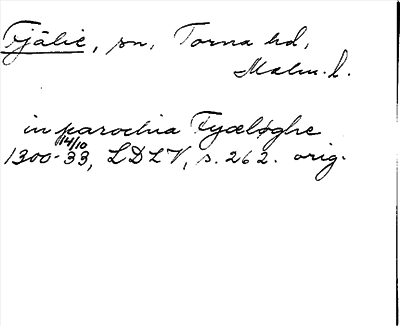 Fjälie, sn, Torna hd,
Malm. l.
in parochia Fyæløghe
14/10
1300-33, LDLV, s. 262. orig.